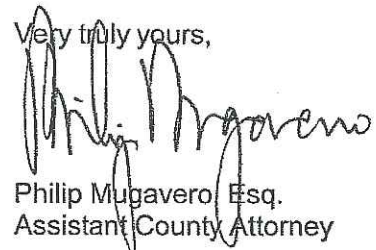 Very truly yours,
Philip Mugavero
Philip Mugavero, Esq.
Assistant County Attorney